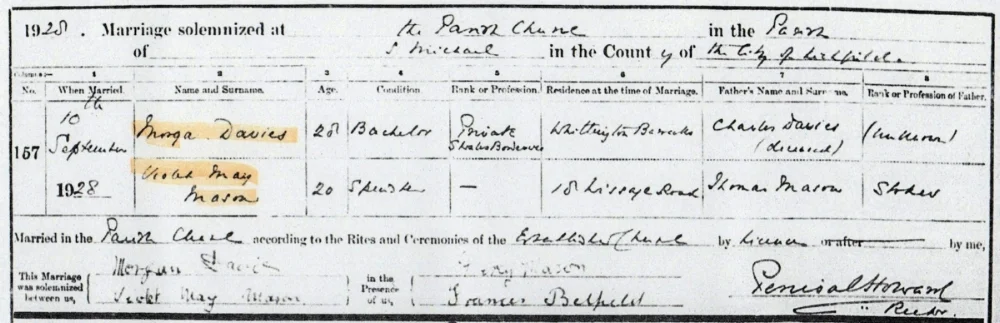 1928. Marriage solemnized at the Parish Church in the Parish
of S Michael in the County of the City of Lichfield.
Columns:— 1 2 3 4 5 6 7 8
No. When Married. Name and Surname. Age. Condition. Rank or Profession. Residence at the time of Marriage. Father's Name and Surname. Rank or Profession of Father.
157 10th September 1928 Morga Davies 28 Bachelor Private Whittington Barracks Charles Davies (deceased) (unknown)
Violet May Mason 20 Spinster — 18 Road Thomas Mason Stoker
Married in the Parish Church according to the Rites and Ceremonies of the Established Church by Licence or after — by me,
This Marriage was solemnized between us, Morgan Davies in the Presence of us, Mason
Violet May Mason Frances Belfield Percival Howard
Rector.